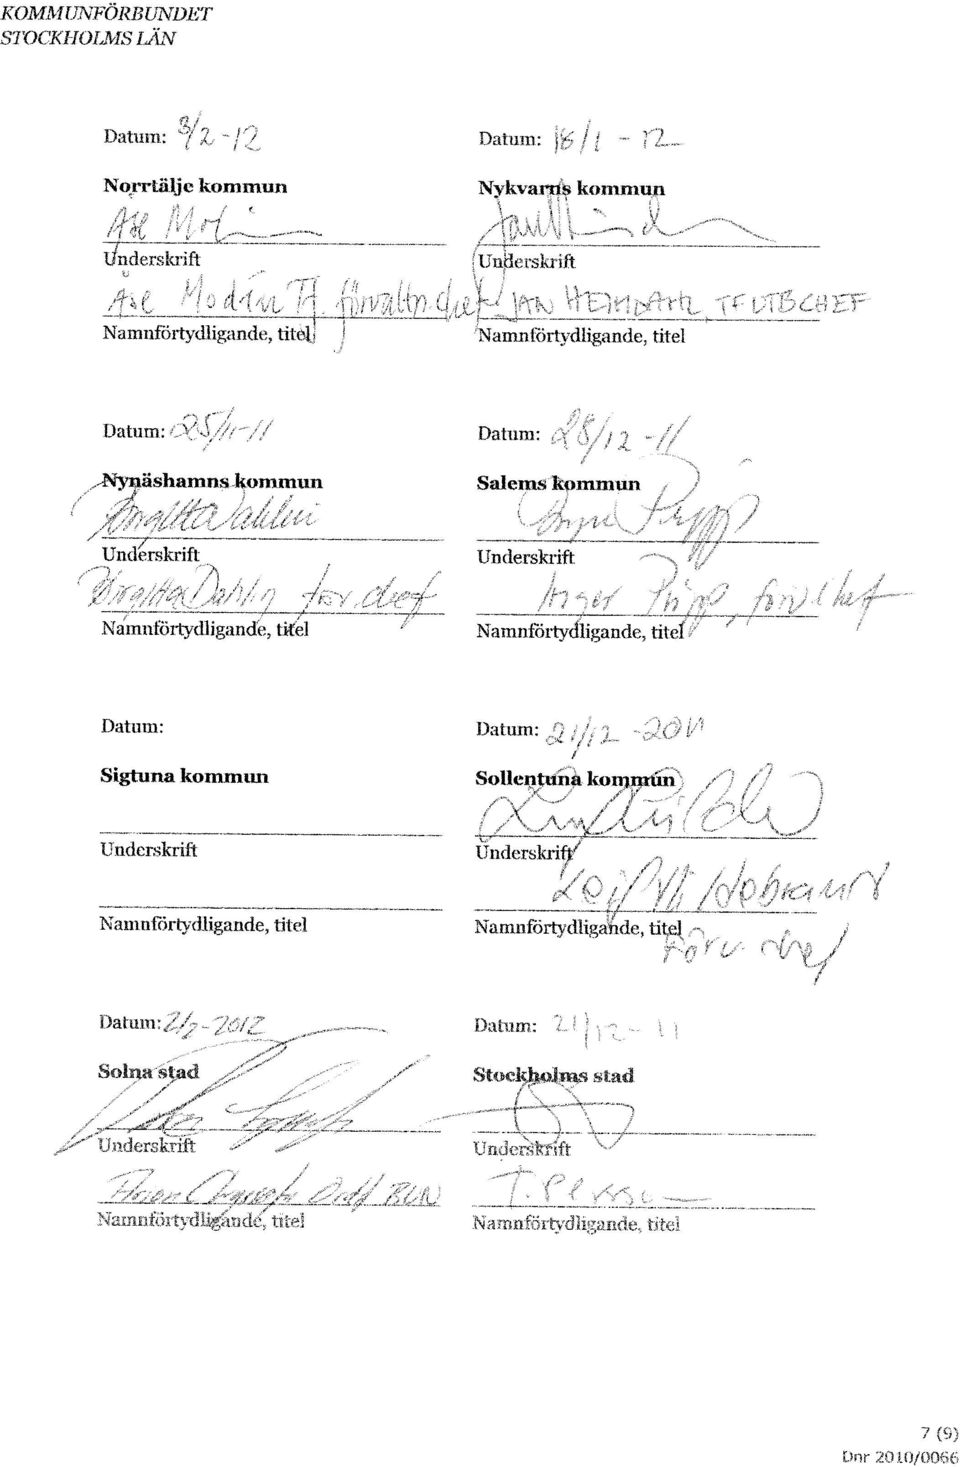 KOMMUNFÖRBUNDET
STOCKHOLMS LÄN
Datum: 3/2 -12
Norrtälje kommun
Åse Mo
Underskrift
Åse Modin Tf. förvaltn.chef
Namnförtydligande, titel
Datum: 18/1 - 12
Nykvarns kommun
Underskrift
JAN HEIMDAHL, TF UTBCHEF
Namnförtydligande, titel
Datum: 25/11-11
Nynäshamns kommun
Birgitta Dahlin
Underskrift
Birgitta Dahlin förv.chef
Namnförtydligande, titel
Datum: 28/12 -11
Salems kommun
Underskrift
Inger Pripp, förvchef
Namnförtydligande, titel
Datum:
Sigtuna kommun
Underskrift
Namnförtydligande, titel
Datum: 21/12 -2011
Sollentuna kommun
Underskrift
Leif Hildebrand
Namnförtydligande, titel
Förv. chef
Datum: 2/2-2012
Solna stad
Underskrift
Ordf BUN
Namnförtydligande, titel
Datum: 21/12- 11
Stockholms stad
Underskrift
T. Persson
Namnförtydligande, titel
7 (9)
Dnr 2010/0066